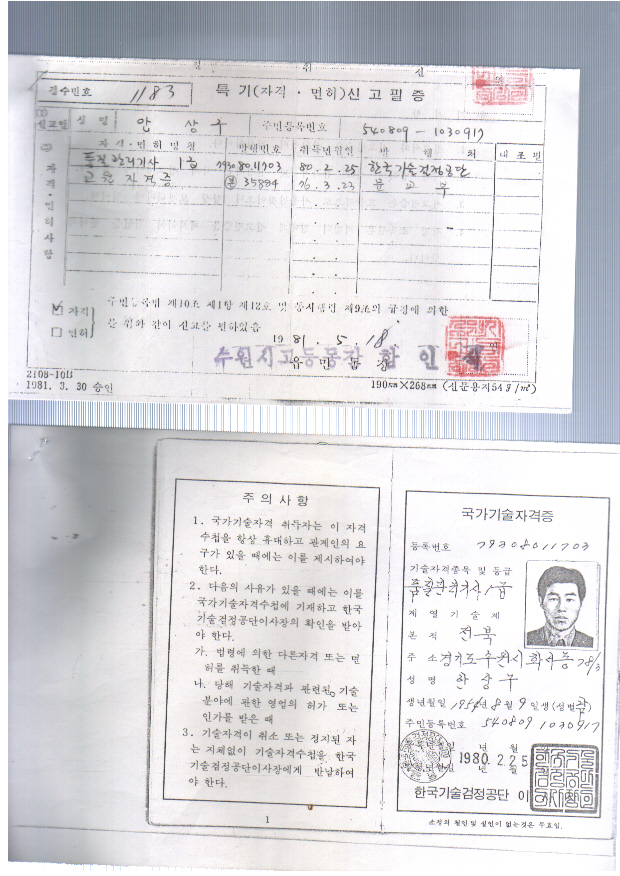 접수번호 1183 특기(자격·면허)신고필증
성명 안상구 주민등록번호 540809-1030917
자격·면허명칭 발행번호 취득년월일 발행처 대조필
품질관리기사 1급 79308011703 80.2.25 한국기술검정공단
교원자격증 35884 76.3.23 문교부
자격·면허사항
자격
주민등록법 제10조 제1항 제12호 및 동시행령 제9조의 규정에 의한
면허
를 위와 같이 신고를 필하였음
1981.5.18.
수원시고등동장
읍면동장
2108-10B
1981. 3. 30 승인 190㎜×268㎜ (신문용지54g/㎡)
주의사항
1. 국가기술자격 취득자는 이 자격
수첩을 항상 휴대하고 관계인의 요
구가 있을 때에는 이를 제시하여야
한다.
2. 다음의 사유가 있을 때에는 이를
국가기술자격수첩에 기재하고 한국
기술검정공단이사장의 확인을 받아
야 한다.
가. 법령에 의한 다른자격 또는 면
허를 취득한 때
나. 당해 기술자격과 관련된 기술
분야에 관한 영업의 허가 또는
인가를 받은 때
3. 기술자격이 취소 또는 정지된 자
는 지체없이 기술자격수첩을 한국
기술검정공단이사장에게 반납하여
야 한다.
1
국가기술자격증
등록번호 79308011703
기술자격종목 및 등급
품질관리기사 1급
계열기술계
본적 전북
주소 경기도 수원시 화서동 78/3
성명 안상구
생년월일 1954년 8월 9일생(성별남)
주민등록번호 540809 1030917
년 월
1980. 2. 25
년 월
한국기술검정공단 이사장
소정의 철인 및 실인이 없는것은 무효임.